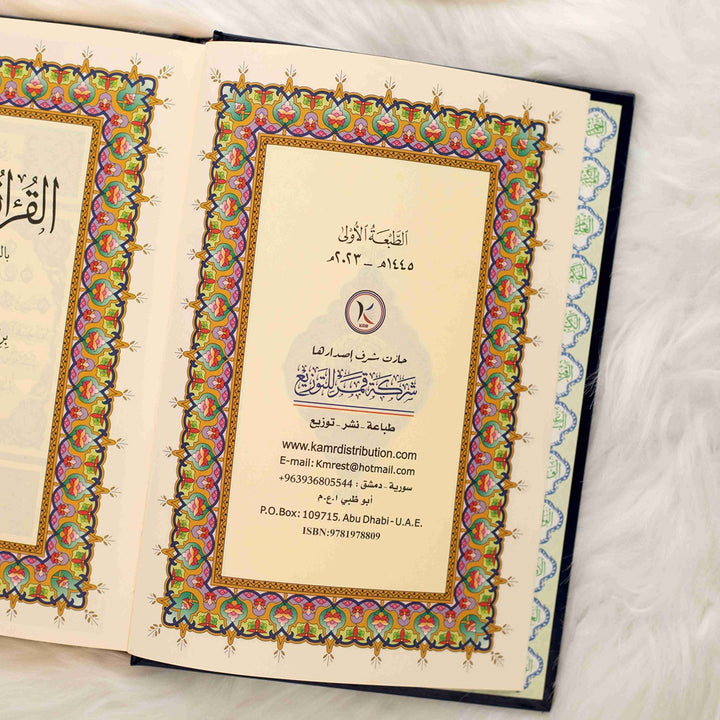 الطَّبْعَةُ الأُولَى
١٤٤٥هـ - ٢٠٢٣م
حازت شرف إصدارها
شركة قمر للتوزيع
طباعة - نشر - توزيع
www.kamrdistribution.com
E-mail: Kmrest@hotmail.com
سورية - دمشق : 963936805544+
أبو ظبي ا.ع.م
P.O.Box: 109715. Abu Dhabi - U.A.E.
ISBN:9781978809